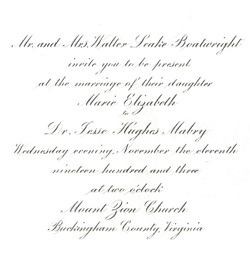 Mr. and Mrs. Walter Leake Boatwright
invite you to be present
at the marriage of their daughter
Marie Elizabeth
to
Dr. Jesse Hughes Mabry
Wednesday evening, November the eleventh
nineteen hundred and three
at two o'clock
Mount Zion Church
Buckingham County, Virginia